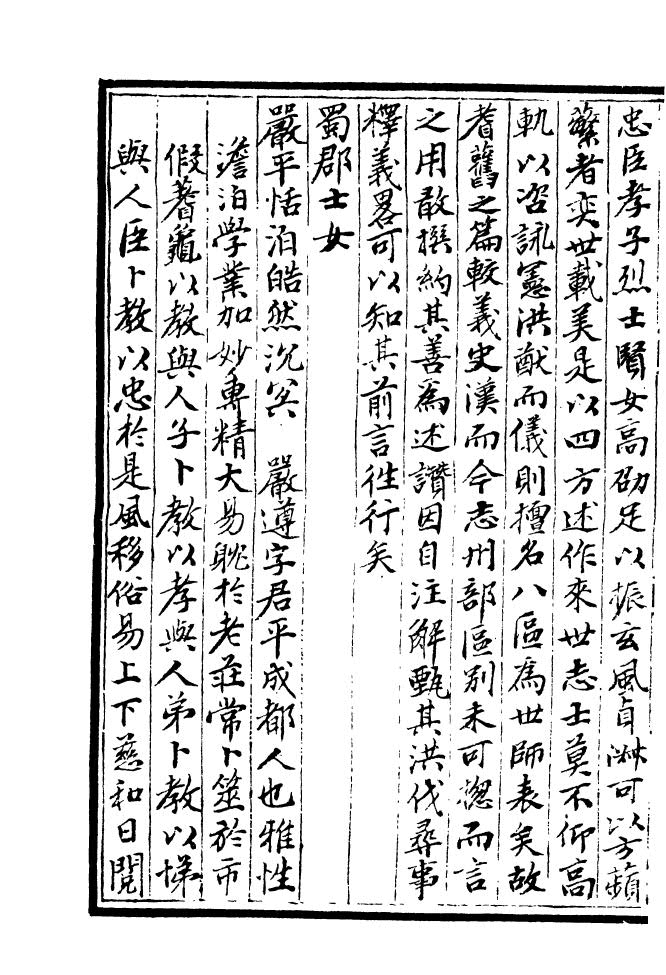 忠臣孝子烈士賢女高劭足以振玄風貞淋可以方蘋
蘩者奕世載美是以四方述作來世志士莫不仰高
軌以咨詠憲洪猷而儀則擅名八區為世師表矣故
耆舊之篇較義史漢而今志州部區別未可揔而言
之用敢撰約其善為述讚因自注解甄其洪伐尋事
釋義畧可以知其前言徃行矣
蜀郡士女
嚴平恬泊皓然沉冥　嚴遵字君平成都人也雅性
澹泊學業加妙專精大易耽於老莊常卜筮於市
假蓍龜以教與人子卜教以孝與人弟卜教以悌
與人臣卜教以忠於是風移俗易上下慈和日閱